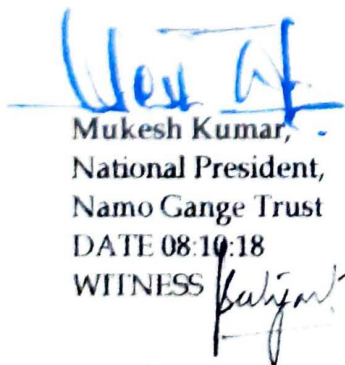 Mukesh Kumar,
National President,
Namo Gange Trust
DATE 08:10:18
WITNESS